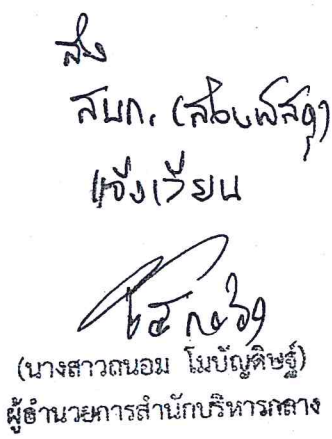 ส่ง
สบก. (ส่วนพัสดุ)
แจ้งเวียน
(นางสาวถนอม โมบัญดิษฐ์)
ผู้อำนวยการสำนักบริหารกลาง